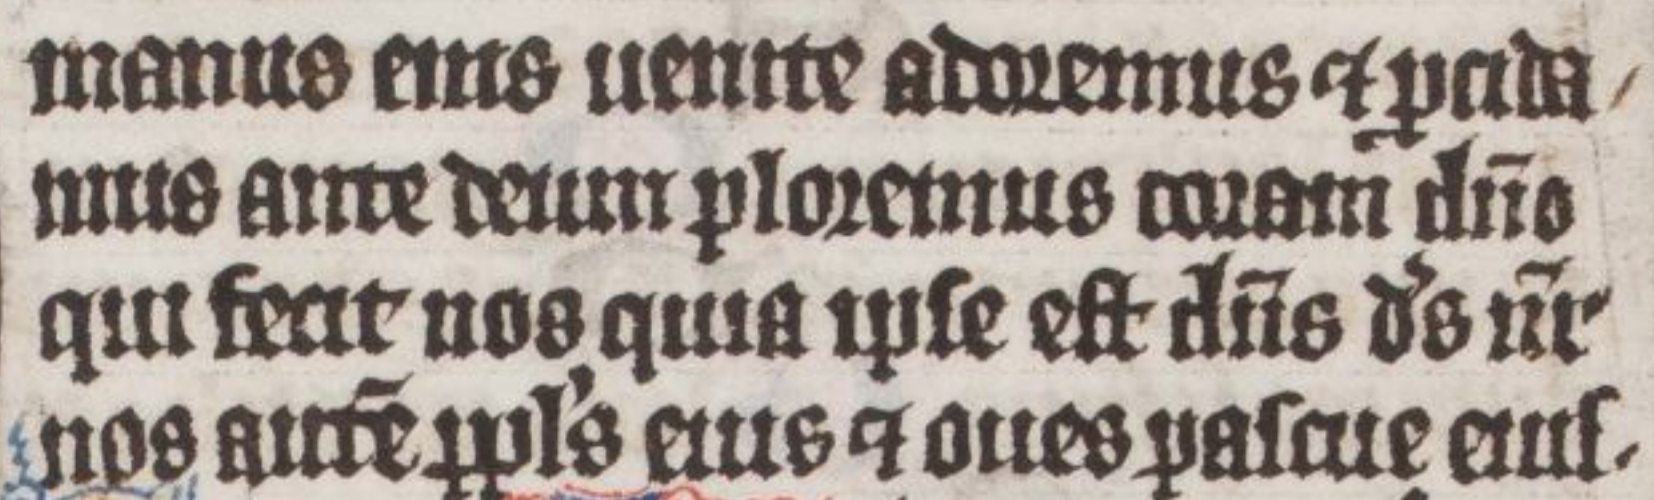 manus eius uenite adoremus ⁊ ꝓcida
mus ante deum ploremus coram dn̄o
qui fecit nos quia ipse est dn̄s ds̄ nr̄
nos autē ppl̓s eius ⁊ oues pascue eius.